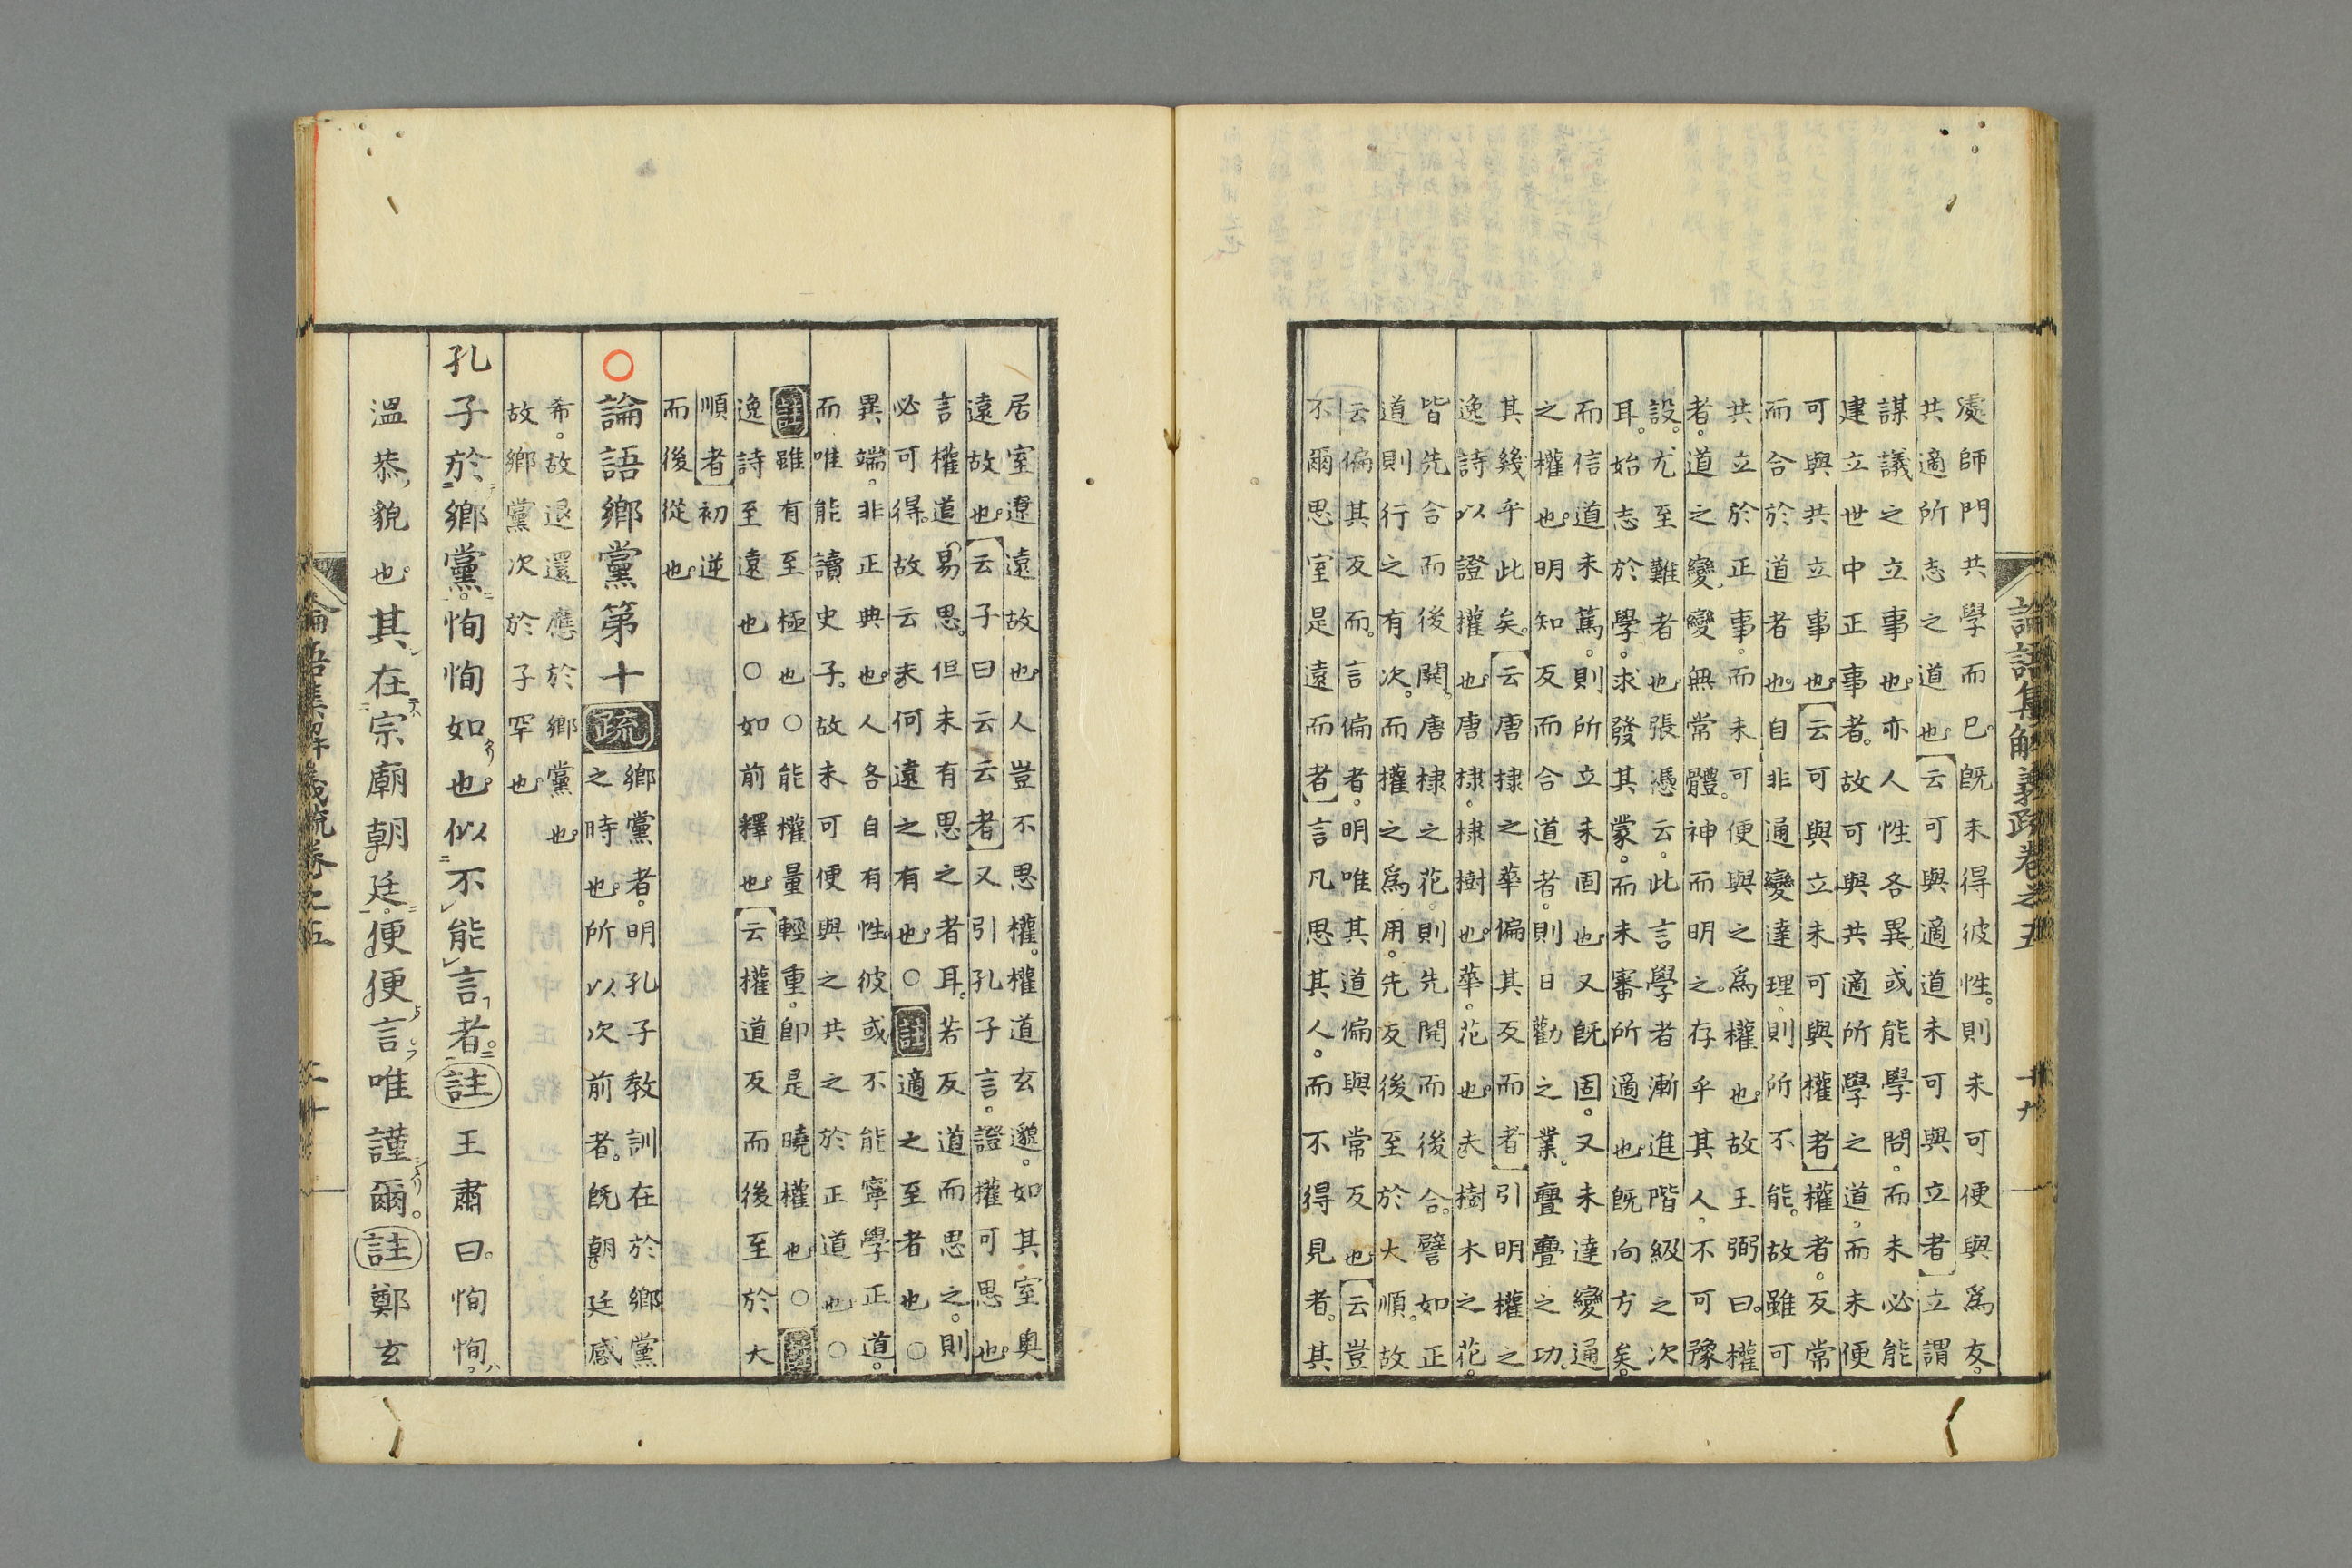 論語集解義疏卷之五 廿九
處師門共學而已。既未得彼性。則未可便與爲友。
共適所志之道也。云可與適道未可與立者立謂
謀議之立事也。亦人性各異。或能學問。而未必能
建立世中正事者。故可與共適所學之道。而未便
可與共立事也。云可與立未可與權者權者。反常
而合於道者也。自非通變達理。則所不能。故雖可
共立於正事。而未可便與之爲權也。故王弼曰。權
者。道之變。變無常體。神而明之。存乎其人。不可豫
設。尤至難者也。張憑云。此言學者漸進階級之次
耳。始志於學。求發其蒙。而未審所適也。既向方矣。
而信道未篤。則所立未固也。又既固。又未達變通
之權也。明知反而合道者。則日勸之業。亹亹之功。
其幾乎此矣。云唐棣之華偏其反而者引明權之
逸詩以證權也。唐棣。棣樹也。華。花也。夫樹木之花。
皆先合而後開。唐棣之花。則先開而後合。譬如正
道則行之有次。而權之爲用。先反後至於大順。故
云偏其反而。言偏者。明唯其道偏與常反也云豈
不爾思室是遠而者言凡思其人。而不得見者。其
居室遼遠故也。人豈不思權。權道玄邈。如其室奧
遠故也。云子曰云云者又引孔子言。證權可思也。
言權道易思。但未有思之者耳。若反道而思之。則
必可得。故云未何遠之有也。○註適之至者也○
異端。非正典也。人各自有性。彼或不能寧學正道。
而唯能讀史子。故未可便與之共之於正道也○
註雖有至極也○能權量輕重。即是曉權也○註
逸詩至遠也○如前釋也。云權道反而後至於大
順者初逆
而後從也。
論語鄉黨第十疏鄉黨者。明孔子教訓在於鄉黨
之時也。所以次前者。既朝廷感
希。故退還應於鄉黨也。
故鄉黨次於子罕也。
孔子於鄉黨。恂恂如也。似不能言者。註王肅曰。恂恂。
溫恭貌也。其在宗廟朝廷。便便言唯謹爾。註鄭玄
論語集解義疏卷之五